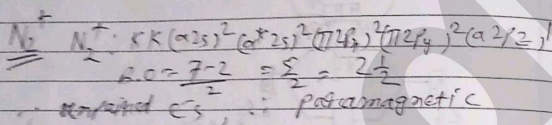 N₂⁺ N₂⁺: KK(α2s)²(α*2s)²(π2Pₓ)²(π2Py)²(α2Pz)¹
B.O = 7-2/2 = 5/2 = 2 1/2
∴ e⁻s, ∴ paramagnetic